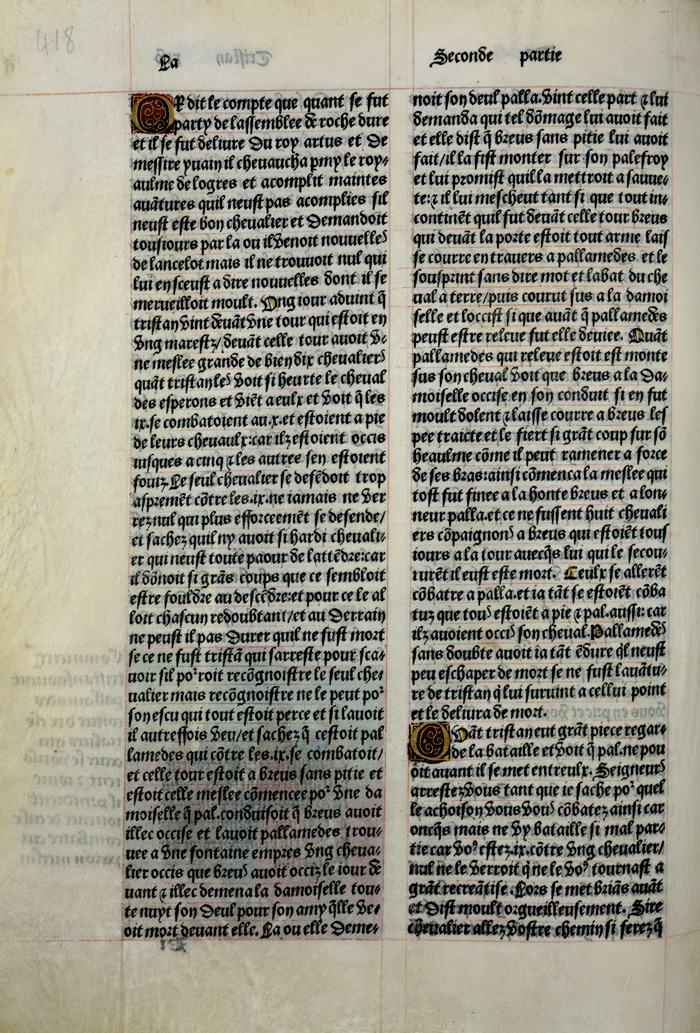 418
La
Seconde partie
Or dit le compte que quant se fut
party de lassemblee de roche dure
et il se fut deliure Du roy artus et De
messire yuain il cheuaucha pmy le roy-
aulme de logres et acomplit maintes
auãtures quil neust pas acomplies sil
neust este bon cheualier et Demandoit
tousiours par la ou il venoit nouuelles
de lancelot mais il ne trouuoit nul qui
lui en sceust a dire nouuelles dont il se
merueilloit moult. Ung iour aduint q̃
tristan vint deuãt vne tour qui estoit en
vng marestz/ deuãt celle tour auoit v-
ne meslee grande de bien dix cheualiers
quãt tristan les voit si heurte le cheual
des esperons et viẽt a eulx et voit q̃ les
ix.se combatoient au.x.et estoient a pie
de leurs cheuaulx:car ilz estoient occis
iusques a cinq ⁊ les autres sen estoient
fouiz. Le seul cheualier se defẽdoit trop
aspremẽt cõtre les.ix.ne iamais ne ver
rez nul qui plus efforceemẽt se defende/
et sachez quil ny auoit si hardi cheuali-
er qui neust toute paour de lattẽdre:car
il dõnoit si grãs coups que ce sembloit
estre fouldre au descẽdre:et pour ce le al
loit chascun redoubtant/et au Derrain
ne peust il pas Durer quil ne fust mort
se ce ne fust tristã qui sarreste pour sca-
uoir sil poꝛroit recõgnoistre le seul che-
ualier mais recõgnoistre ne le peut poꝛ
son escu qui tout estoit perce et si lauoit
il autreffois veu/et sachez q̃ cestoit pal
lamedes qui cõtre les.ix.se combatoit/
et celle tour estoit a breus sans pitie et
estoit celle meslee cõmencee poꝛ vne da
moiselle q̃ pal.conduisoit q̃ breus auoit
illec occise et lauoit pallamedes trou-
uee a vne fontaine empres vng cheua-
lier occis que breus auoit occiz le iour de
uant ⁊ illec demena la damoiselle tou-
te nuyt son Deul pour son amy q̃lle ve-
oit mort deuant elle. La ou elle Deme-
noit son deul palla.vint celle part ⁊ lui
demanda qui tel dõmage lui auoit fait
et elle dist q̃ breus sans pitie lui auoit
fait/il la fist monter sur son palefroy
et lui promist quil la mettroit a sauue-
te:⁊ il lui mescheut tant si que tout in-
continẽt quil fut deuãt celle tour breus
qui deuãt la porte estoit tout arme lais
se courre en trauers a pallamedes et le
sousprint sans dire mot et labat du che
ual a terre/puis courut sus a la damoi
selle et loccist si que auãt q̃ pallamedes
peust estre releue fut elle deuiee. Quãt
pallamedes qui releue estoit est monte
sus son cheual voit que breus a la Da-
moiselle occise en son conduit si en fut
moult dolent ⁊ laisse courre a breus les
pee traicte et le fiert si grãt coup sur sõ
heaulme cõme il peut ramener a force
de ses bras:ainsi cõmenca la meslee qui
tost fut finee a la honte breus et a lon-
neur palla.et ce ne fussent huit cheuali
ers cõpaignons a breus qui estoiẽt tous
iours a la tour auecq̃s lui qui le secou-
rurẽt il eust este mort. Ceulx se allerẽt
cõbatre a palla.et ia tãt se estoiẽt cõba
tuz que tous estoiẽt a pie ⁊ pal.aussi: car
ilz auoient occis son cheual.Pallamedes
sans doubte auoit ia tãt ẽdure q̃l neust
peu eschaper de mort se ne fust lauãtu-
re de tristan q̃ lui suruint a cellui point
et le deliura de mort.
Quãt tristan eut grãt piece regar-
de la bataille et voit q̃ pal.ne pou
oit auant il se met entreulx. Seigneurs
arrestez vous tant que ie sache poꝛ quel
le achoison vous vous cõbatez ainsi car
oncq̃s mais ne vy bataille si mal par-
tie car voꝰ estez.ix.cõtre vng cheualier/
nul ne le verroit q̃ ne le voꝰ tournast a
grãt recreãtise. Lors se met briãs auãt
et Dist moult orgueilleusement. Sire
cheualier allez vostre chemin si ferez q̃